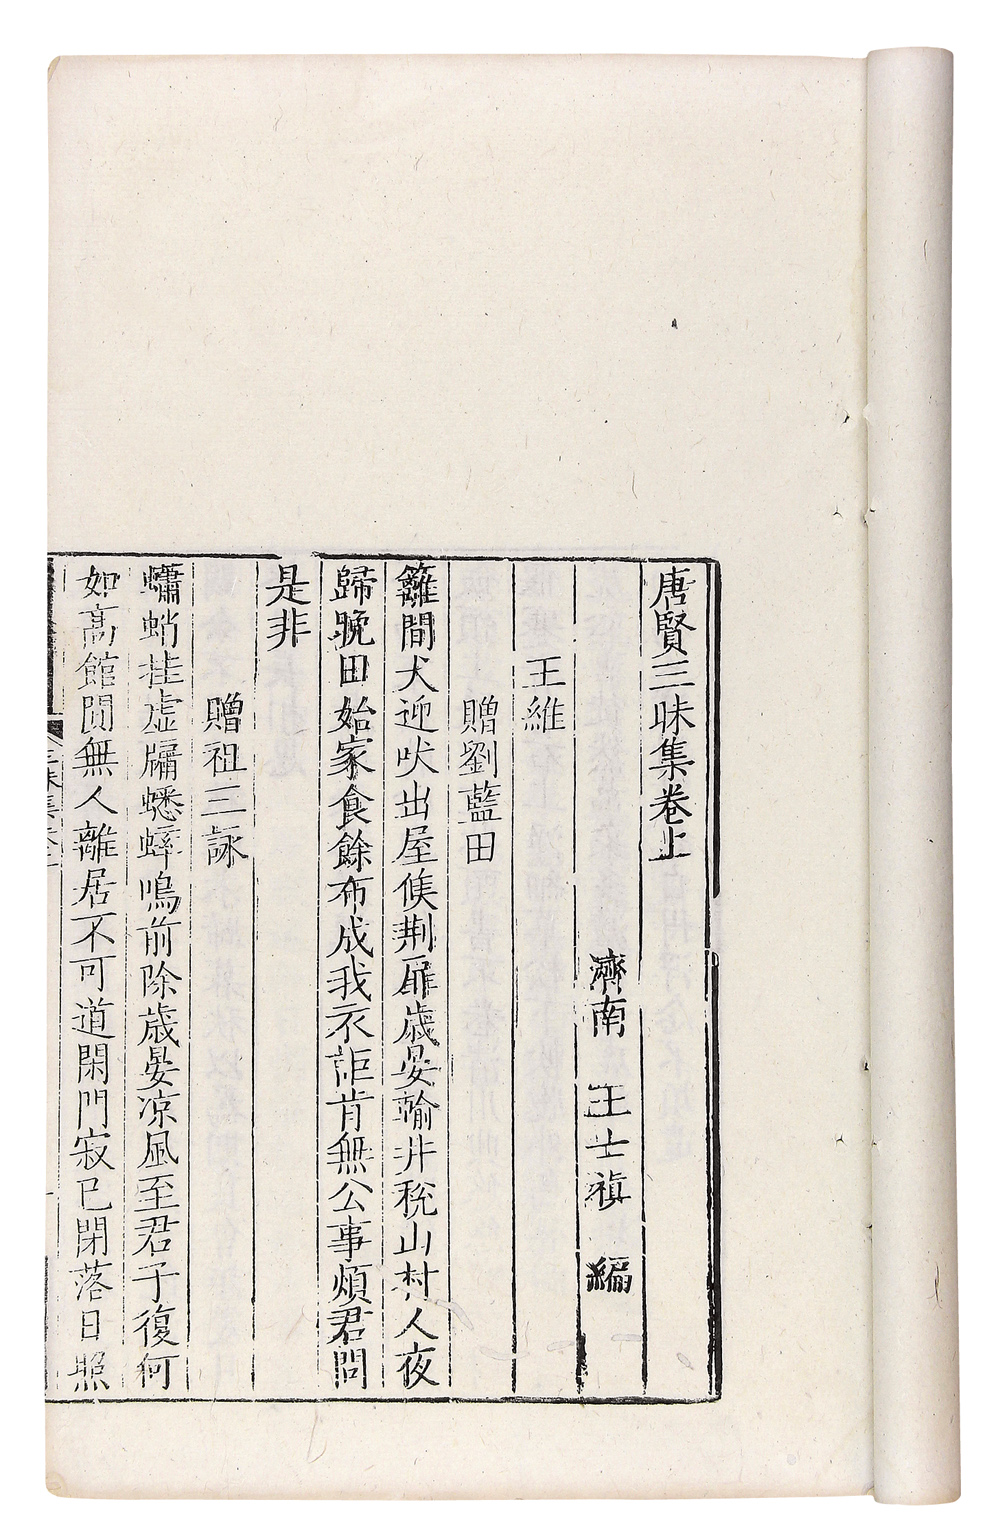 唐賢三昧集卷上
濟南　王士禛　編
王維
贈劉藍田
籬間犬迎吠出屋候荆扉歲晏輸井稅山村人夜
歸晚田始家食餘布成我衣詎肯無公事煩君問
是非
贈祖三詠
蠨蛸挂虚牖蟋蟀鳴前除歲晏凉風至君子復何
如高館閴無人離居不可道閑門寂已閉落日照